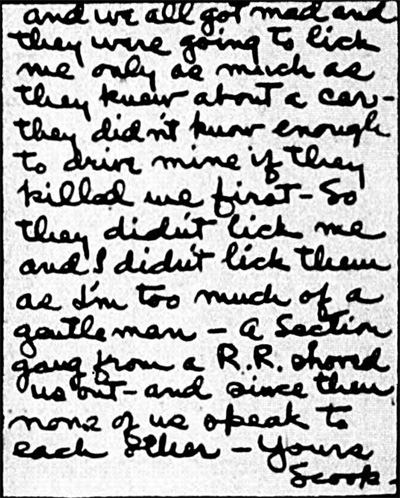 and we all got mad and
they were going to lick
me only as much as
they knew about a car-
they didn't know enough
to drive mine if they
killed me first - So
they didn't lick me
and I didn't lick them
as I'm too much of a
gentleman - A Section
gang from a R.R. shoved
us out - and since then
none of us speak to
each other - Yours
Scoop.